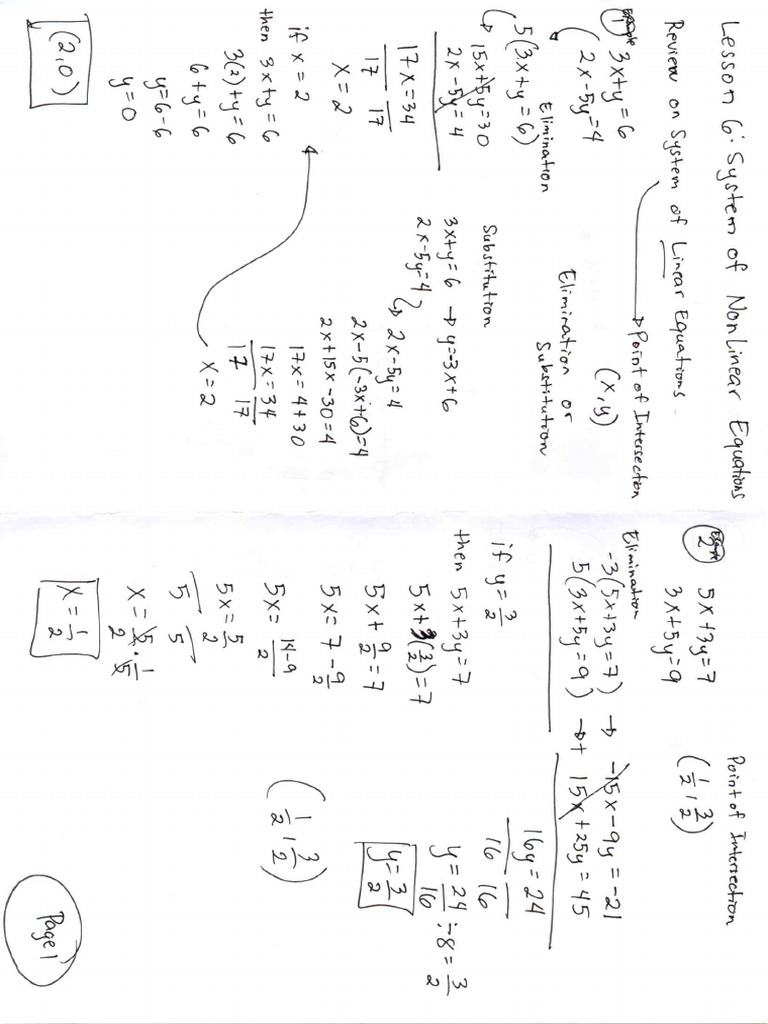 Lesson 6: System of Nonlinear Equations
Review on System of Linear Equations.
→ Point of Intersection
(x, y)
Example 1
3x+y=6
2x-5y=4
Elimination or
Substitution
Elimination
5(3x+y=6)
15x+5y=30
2x-5y=4
17x=34
17 17
x=2
if x=2
then 3x+y=6
3(2)+y=6
6+y=6
y=6-6
y=0
(2,0)
Substitution
3x+y=6 → y=-3x+6
2x-5y=4
2x-5y=4
2x-5(-3x+6)=4
2x+15x-30=4
17x=4+30
17x=34
17 17
x=2
Example 2
5x+3y=7
3x+5y=9
Point of Intersection
(1/2, 3/2)
Elimination
-3(5x+3y=7) → -15x-9y=-21
5(3x+5y=9) → + 15x+25y=45
16y=24
16 16
y=24/16 ÷8=3/2
y=3/2
if y=3/2
then 5x+3y=7
5x+3(3/2)=7
5x+9/2=7
5x=7-9/2
5x=14-9/2
5x=5/2
5 5
x=5/2·1/5
x=1/2
(1/2, 3/2)
Page 1